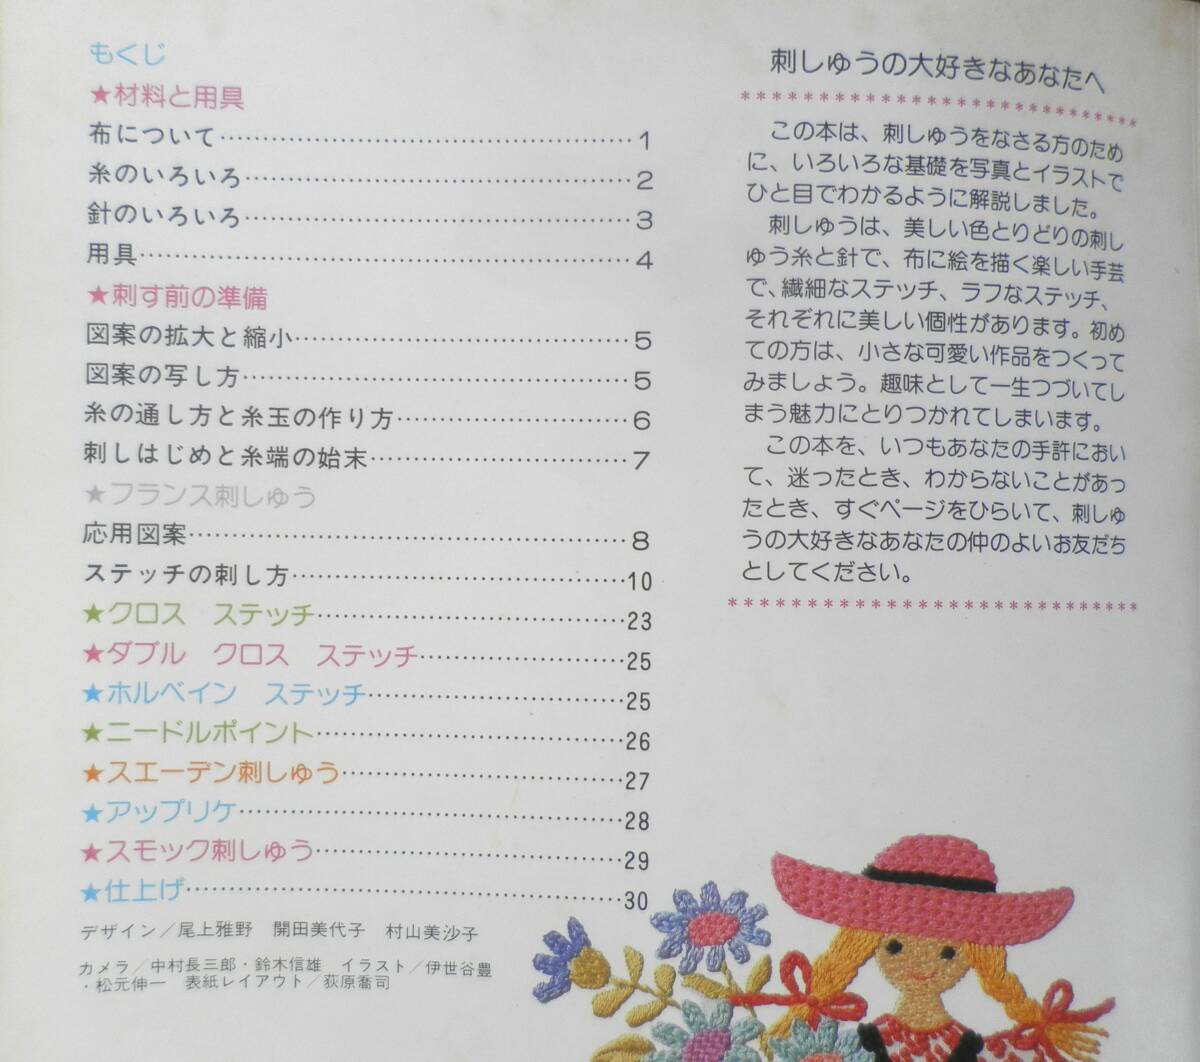 もくじ
★材料と用具
布について‥‥‥‥‥‥‥‥‥‥1
糸のいろいろ‥‥‥‥‥‥‥‥‥2
針のいろいろ‥‥‥‥‥‥‥‥‥3
用具‥‥‥‥‥‥‥‥‥‥‥‥4
★刺す前の準備
図案の拡大と縮小‥‥‥‥‥‥‥5
図案の写し方‥‥‥‥‥‥‥‥‥5
糸の通し方と糸玉の作り方‥‥‥‥6
刺しはじめと糸端の始末‥‥‥‥‥7
★フランス刺しゅう
応用図案‥‥‥‥‥‥‥‥‥‥‥8
ステッチの刺し方‥‥‥‥‥‥‥10
★クロス　ステッチ‥‥‥‥‥‥23
★ダブル　クロス　ステッチ‥‥‥25
★ホルベイン　ステッチ‥‥‥‥25
★ニードルポイント‥‥‥‥‥‥26
★スエーデン刺しゅう‥‥‥‥‥27
★アップリケ‥‥‥‥‥‥‥‥‥28
★スモック刺しゅう‥‥‥‥‥‥29
★仕上げ‥‥‥‥‥‥‥‥‥‥30
デザイン／尾上雅野　開田美代子　村山美沙子
カメラ／中村長三郎・鈴木信雄　イラスト／伊世谷豊
・松元伸一　表紙レイアウト／荻原喬司
刺しゅうの大好きなあなたへ
この本は、刺しゅうをなさる方のため
に、いろいろな基礎を写真とイラストで
ひと目でわかるように解説しました。
刺しゅうは、美しい色とりどりの刺し
ゅう糸と針で、布に絵を描く楽しい手芸
で、繊細なステッチ、ラフなステッチ、
それぞれに美しい個性があります。初め
ての方は、小さな可愛い作品をつくって
みましょう。趣味として一生つづいてし
まう魅力にとりつかれてしまいます。
この本を、いつもあなたの手許におい
て、迷ったとき、わからないことがあっ
たとき、すぐページをひらいて、刺しゅ
うの大好きなあなたの仲のよいお友だち
としてください。